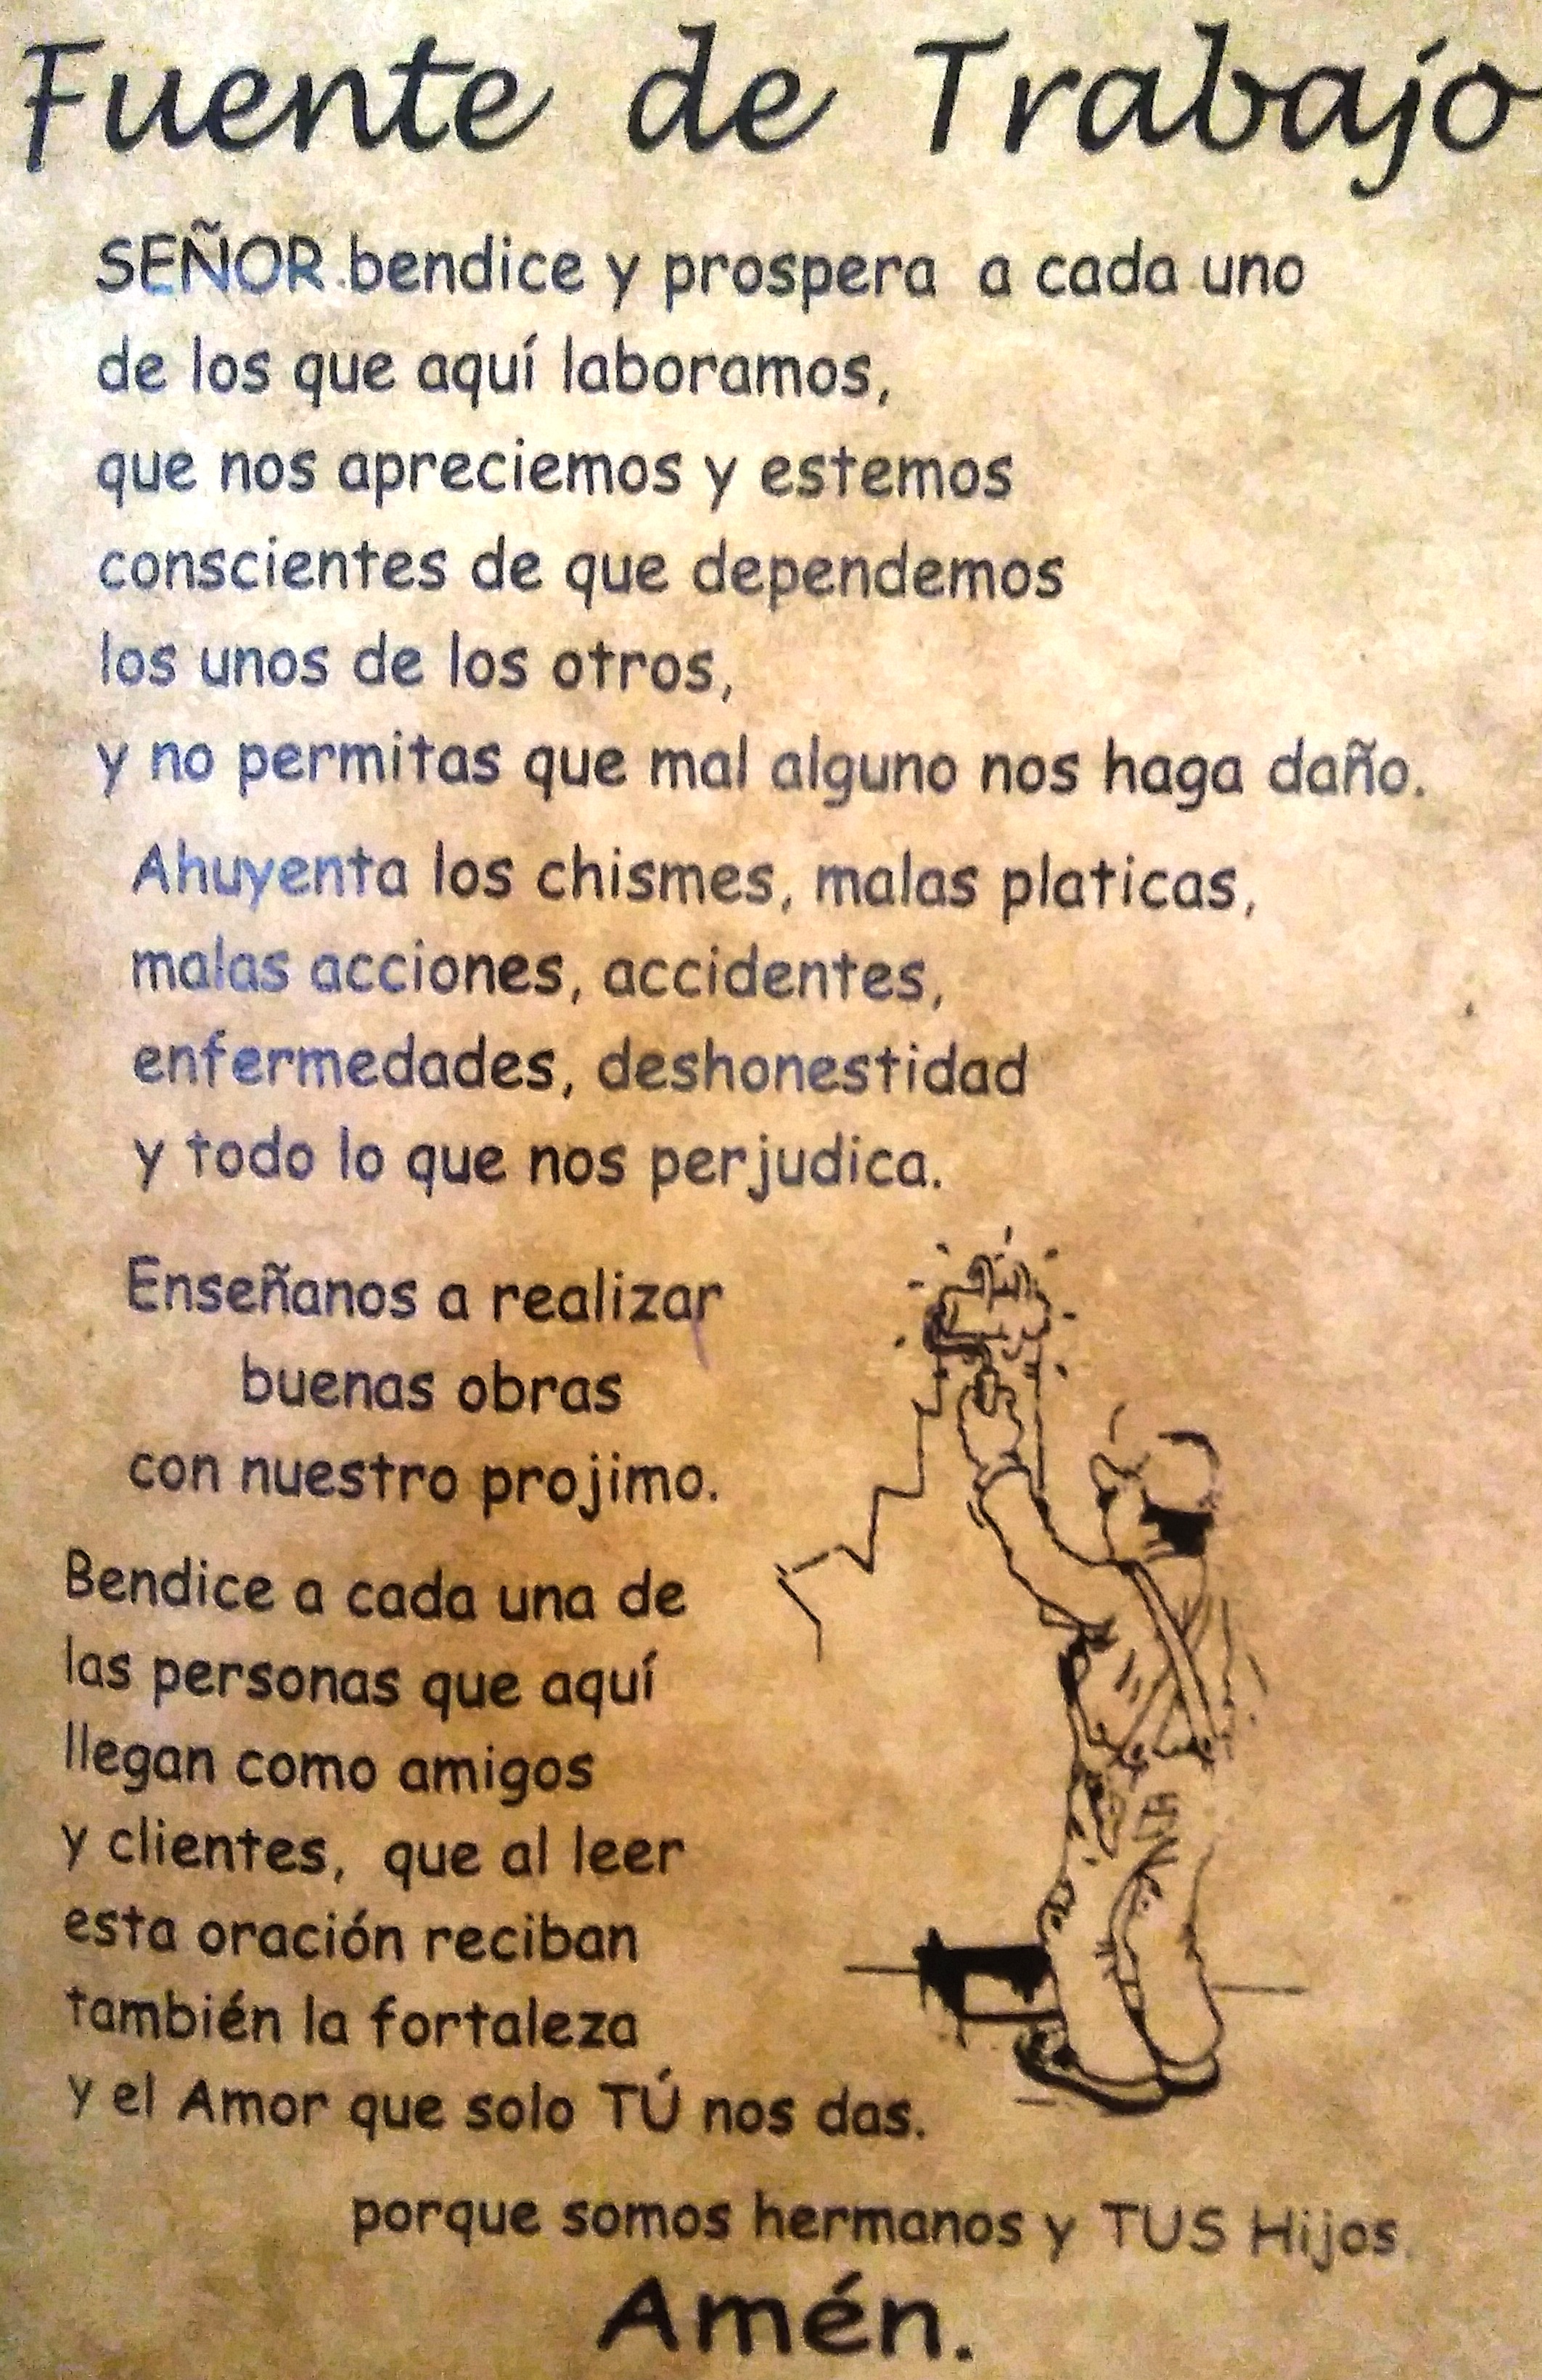 Fuente de Trabajo
SEÑOR.bendice y prospera a cada uno
de los que aquí laboramos,
que nos apreciemos y estemos
conscientes de que dependemos
los unos de los otros,
y no permitas que mal alguno nos haga daño.
Ahuyenta los chismes, malas platicas,
malas acciones, accidentes,
enfermedades, deshonestidad
y todo lo que nos perjudica.
Enseñanos a realizar
buenas obras
con nuestro projimo.
Bendice a cada una de
las personas que aquí
llegan como amigos
y clientes, que al leer
esta oración reciban
también la fortaleza
y el Amor que solo TÚ nos das.
porque somos hermanos y TUS Hijos.
Amén.